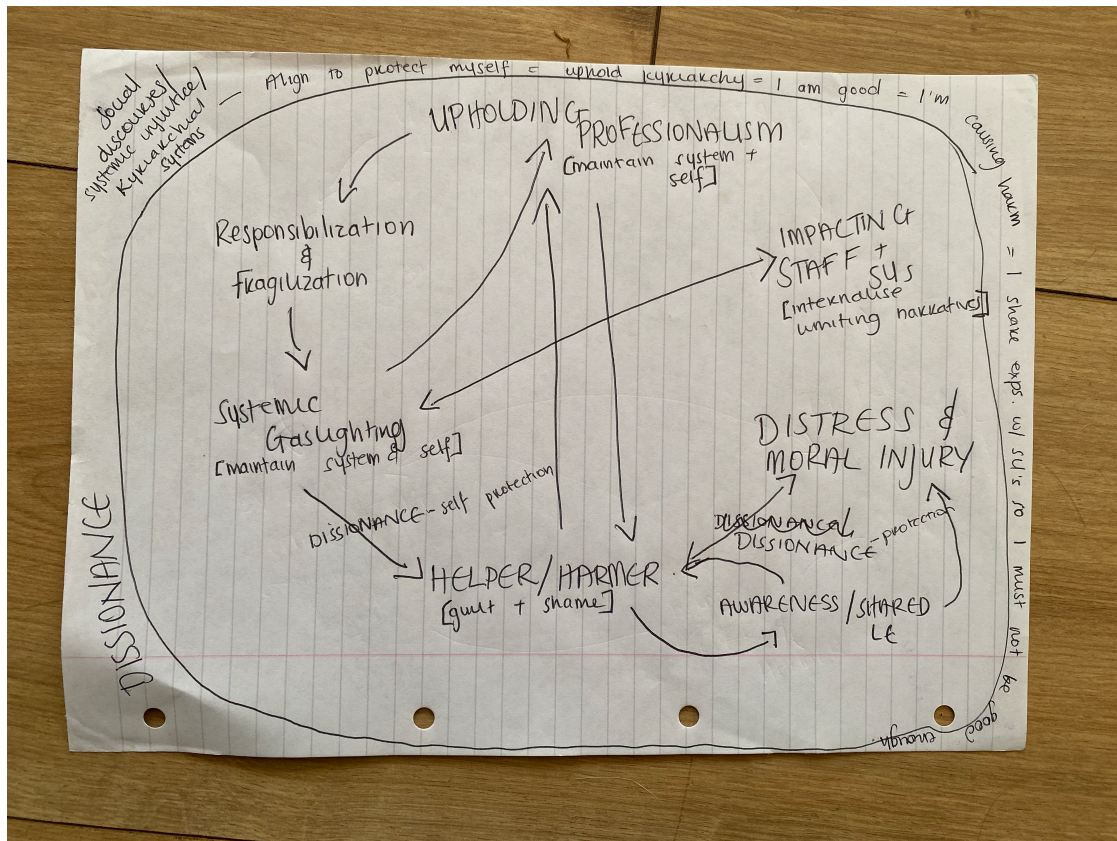 Social
discourses/
systemic injustice/
Kyriarchial
systems
— Align to protect myself = uphold kyriarchy = I am good = I'm
causing harm = I share exps. w/ SU's so I must not be
good enough.
UPHOLDING
PROFESSIONALISM
[maintain system +
self]
Responsibilization
&
Fragilization
IMPACTING
STAFF +
SUs
[internalise
limiting narratives]
Systemic
Gaslighting
[maintain system & self]
DISTRESS &
MORAL INJURY
DISSIONANCE - self protection
DISSIONANCE - protection
HELPER/HARMER
[guilt + shame]
AWARENESS/SHARED
LE
DISSIONANCE